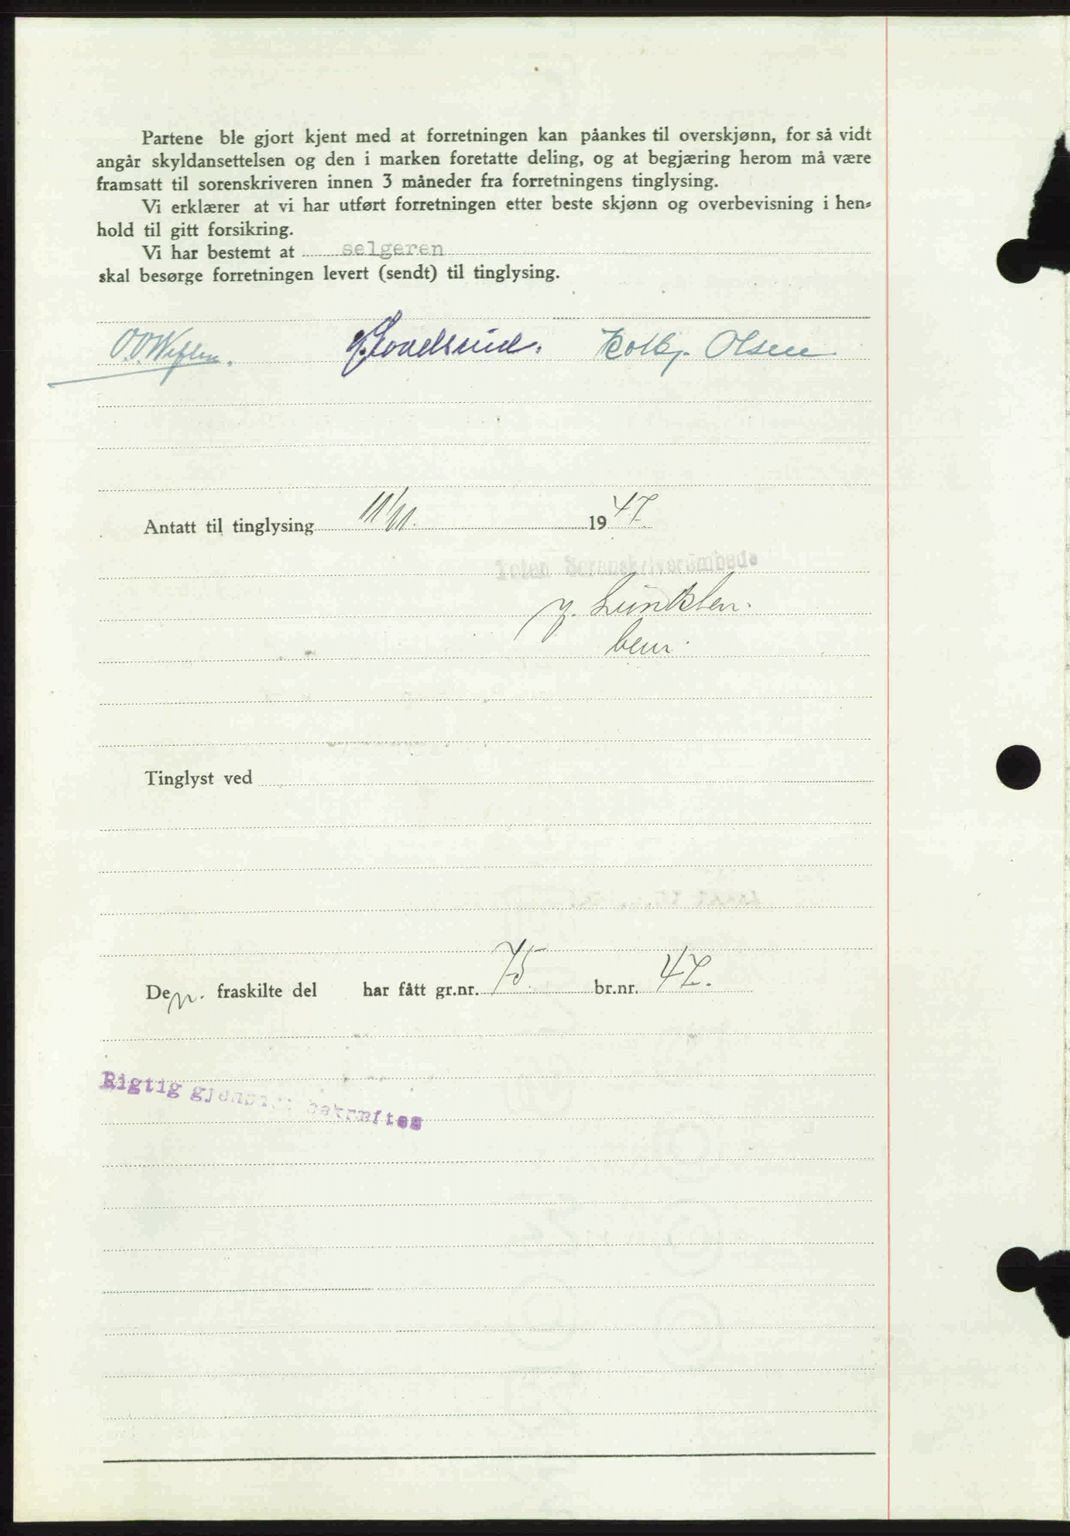 Partene ble gjort kjent med at forretningen kan påankes til overskjønn, for så vidt
angår skyldansettelsen og den i marken foretatte deling, og at begjæring herom må være
framsatt til sorenskriveren innen 3 måneder fra forretningens tinglysing.
Vi erklærer at vi har utført forretningen etter beste skjønn og overbevisning i hen-
hold til gitt forsikring.
Vi har bestemt at selgeren
skal besørge forretningen levert (sendt) til tinglysing.
Kolbj. Olsen
Antatt til tinglysing 11/11. 1947
Toten Sorenskriverembede
Tinglyst ved
Den. fraskilte del har fått gr.nr. 75. br.nr. 47.
Rigtig gjenpart bekræftes